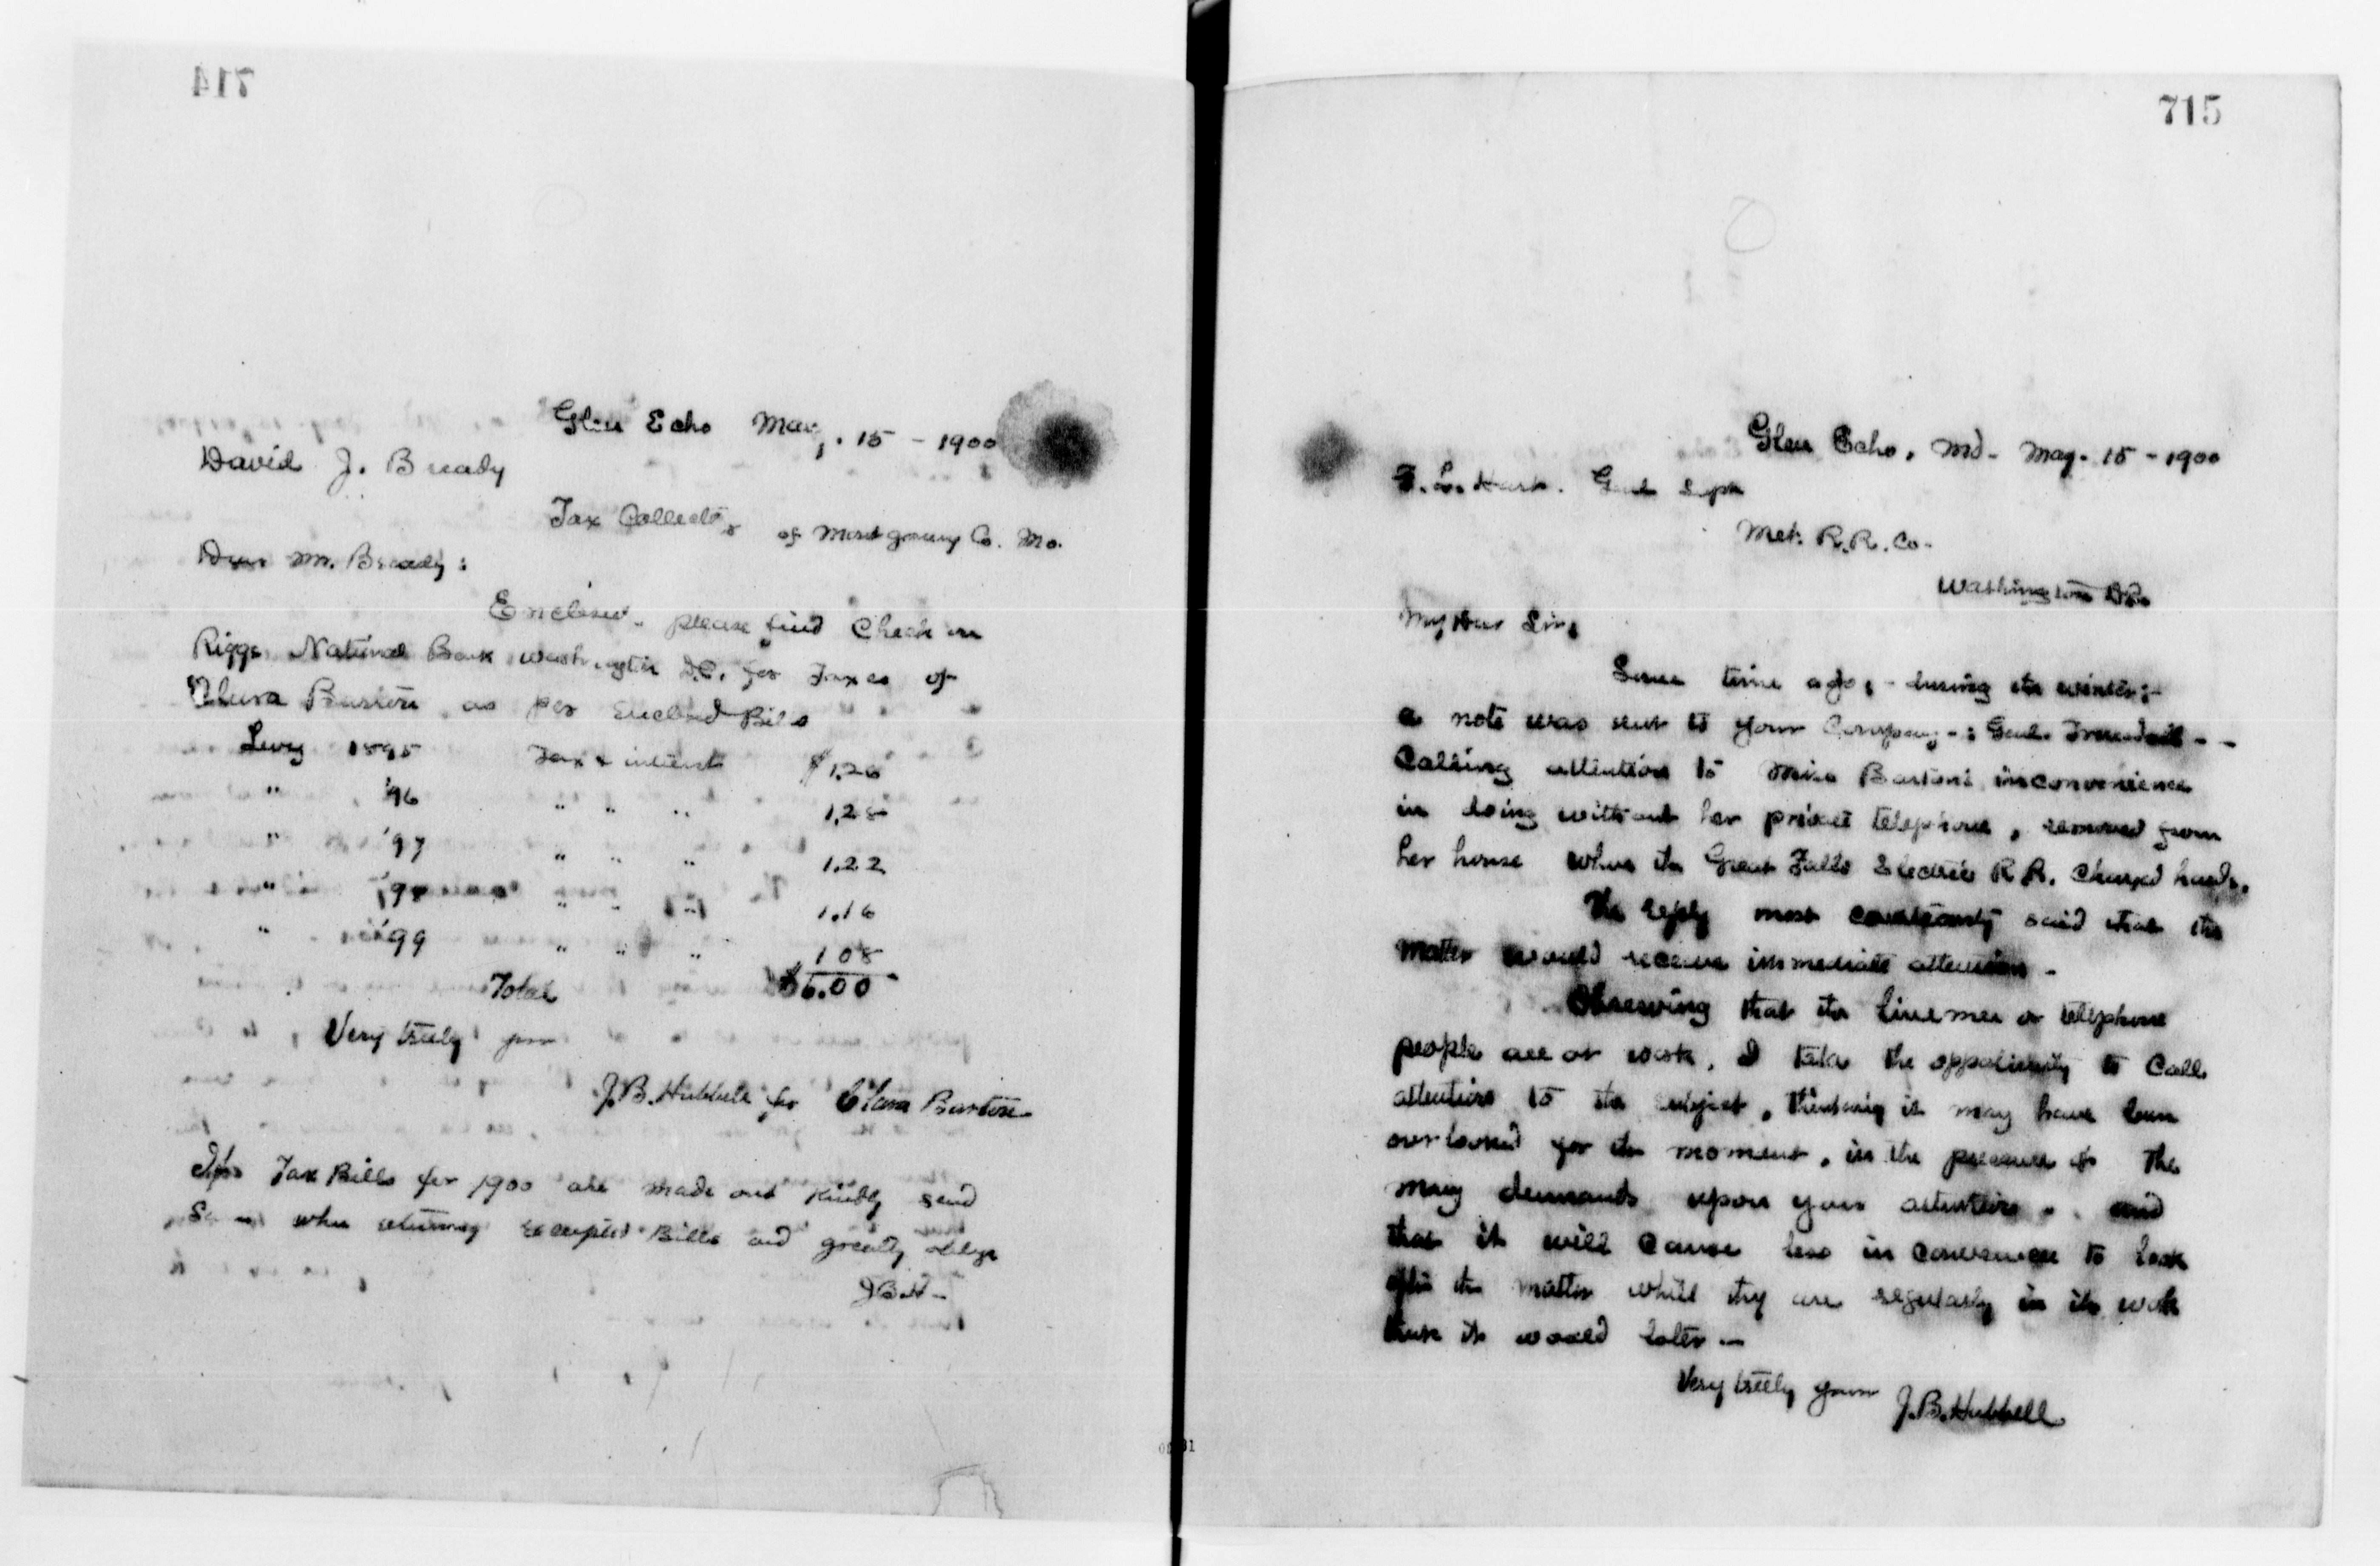 714
Glen Echo May. 15 - 1900
David J. Bready
Tax Collector of Montgomery Co. Md.
Dear Mr. Bready:
Enclosed please find Check on
Riggs National Bank Washington D.C. for Taxes of
Clara Barton as per enclosed Bills
Levy 1895 Tax & interest $1.26
" '96 " " " 1.28
" '97 " " " 1.22
" '98 " " " 1.16
" '99 " " " 1 08
Total $6.00
Very truly yours
J.B. Hubbell for Clara Barton
If Tax Bills for 1900 are made out kindly send
Same when returning receipted Bills and greatly oblige
J B H -
715
Glen Echo, Md - May. 15 - 1900
F. L. Hart. Genl Supt
Met. R.R. Co.
Washington D.C.
My Dear Sir,
Some time ago, - during the winter; -
a note was sent to your Company - : Genl. - -
Calling attention to Miss Barton's inconvenience
in doing without her private telephone, removed from
her house when the Great Falls Electric R.R. changed hands.
The reply most courteously said that the
matter would receive immediate attention -
Observing that the linemen or telephone
people are at work, I take the opportunity to call
attention to the subject, thinking it may have been
overlooked for the moment, in the pressure of the
many demands upon your attention. and
that it will cause less in convenience to look
after the matter while they are regularly in the work
than it would later -
Very truly yours J.B. Hubbell